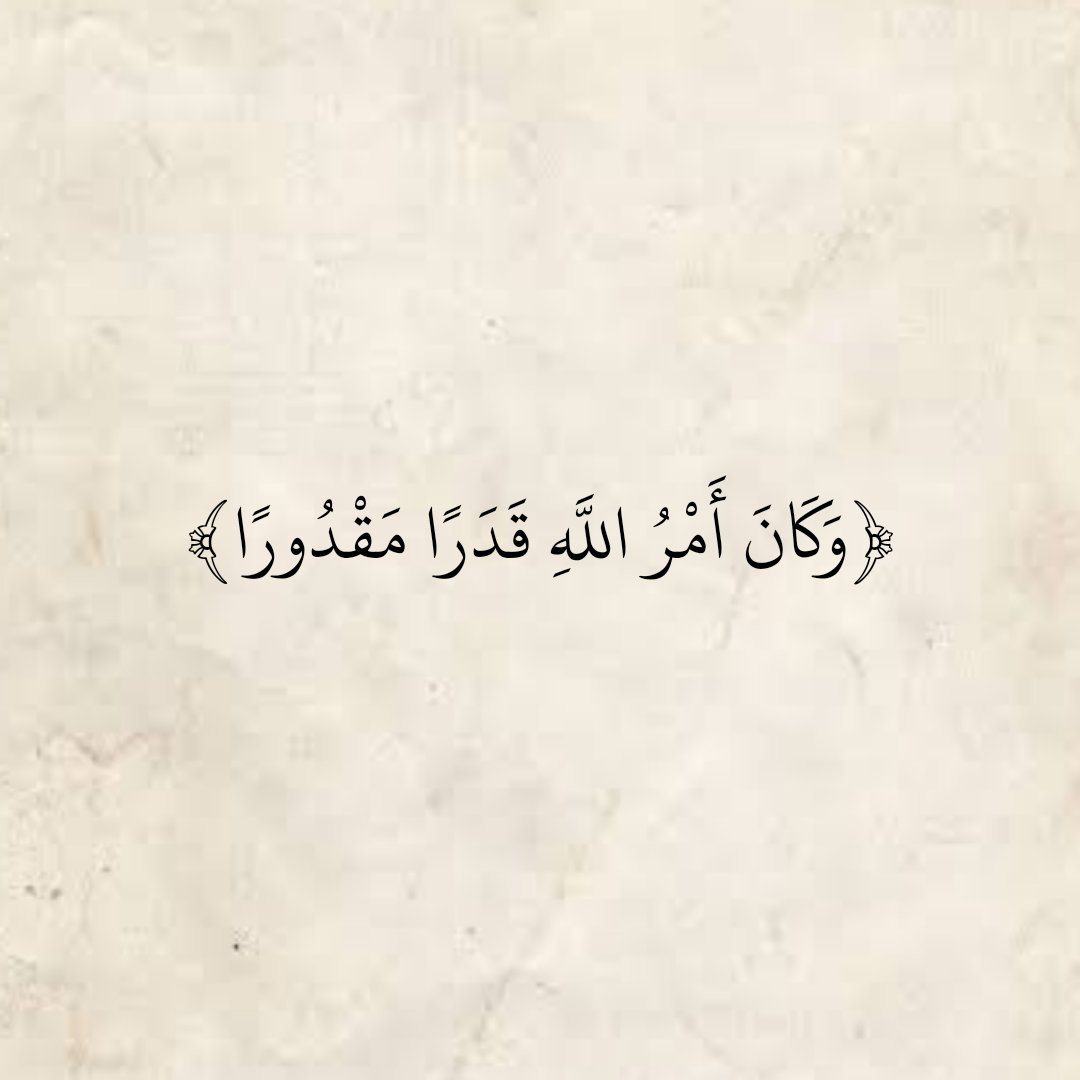 ﴿وَكَانَ أَمْرُ اللَّهِ قَدَرًا مَقْدُورًا﴾